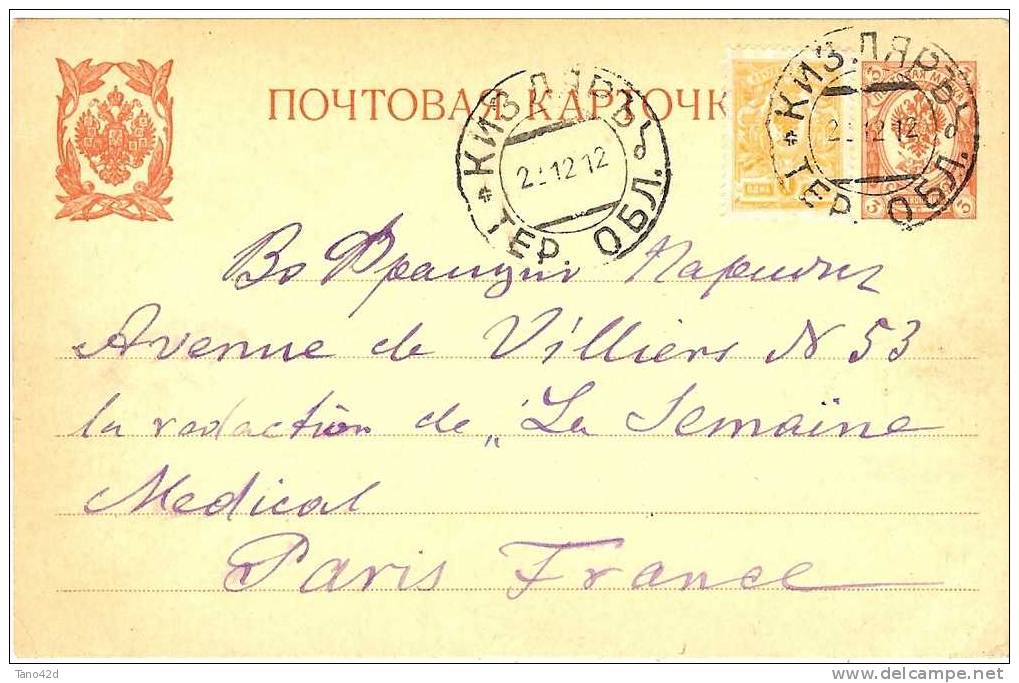 ПОЧТОВАЯ КАРТОЧК
КИЗЛЯРЪ ТЕР. ОБЛ.
12 12
КИЗЛЯРЪ ТЕР. ОБЛ.
12 12
Во Францию Парижъ
Avenue de Villiers N 53
la redaction de „La Semaine
Medical
Paris France
Tano42d
delcampe.net